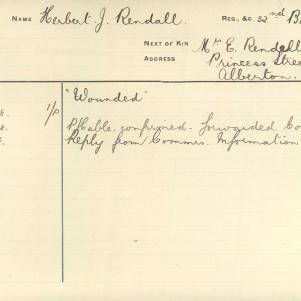 NAME Herbert J. Rendall. REG., &C. 32nd B
NEXT OF KIN Mr E. Rendall
ADDRESS Princess Stree
Alberton.
8. 1/P "Wounded"
8. P/Cable confirmed. forwarded Co
8. Reply from Comms. Information